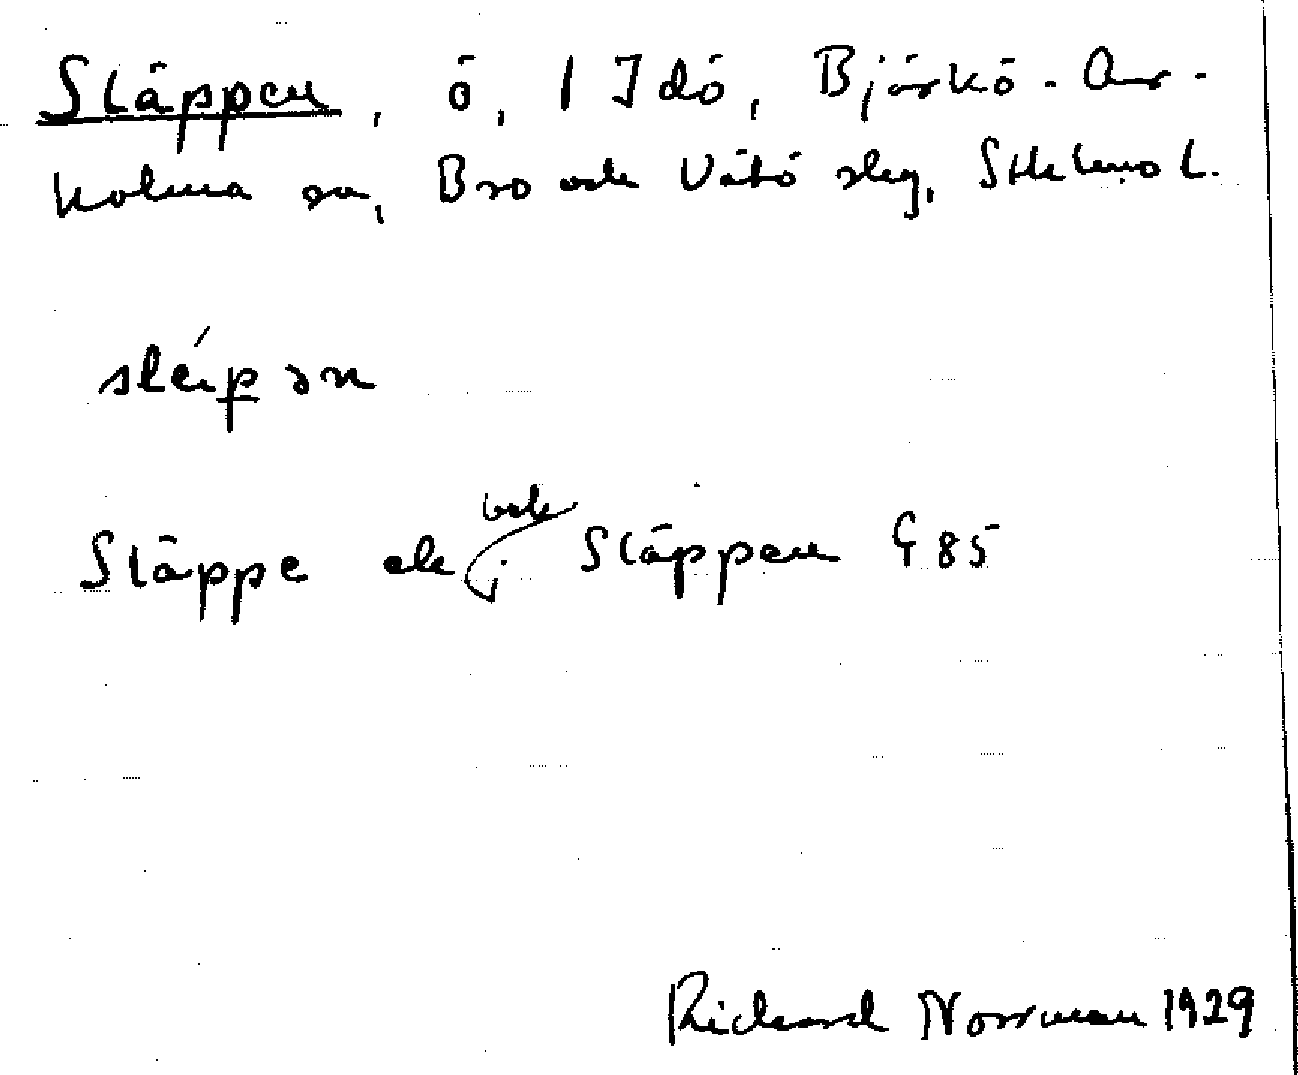 Släppen, ö, 1 Idö, Björkö-Ar-
holma sn, Bro och Vätö skg, Sthlms l.
slép ən
Släppe el. Släppen G 85
och
Richard Norrman 1929